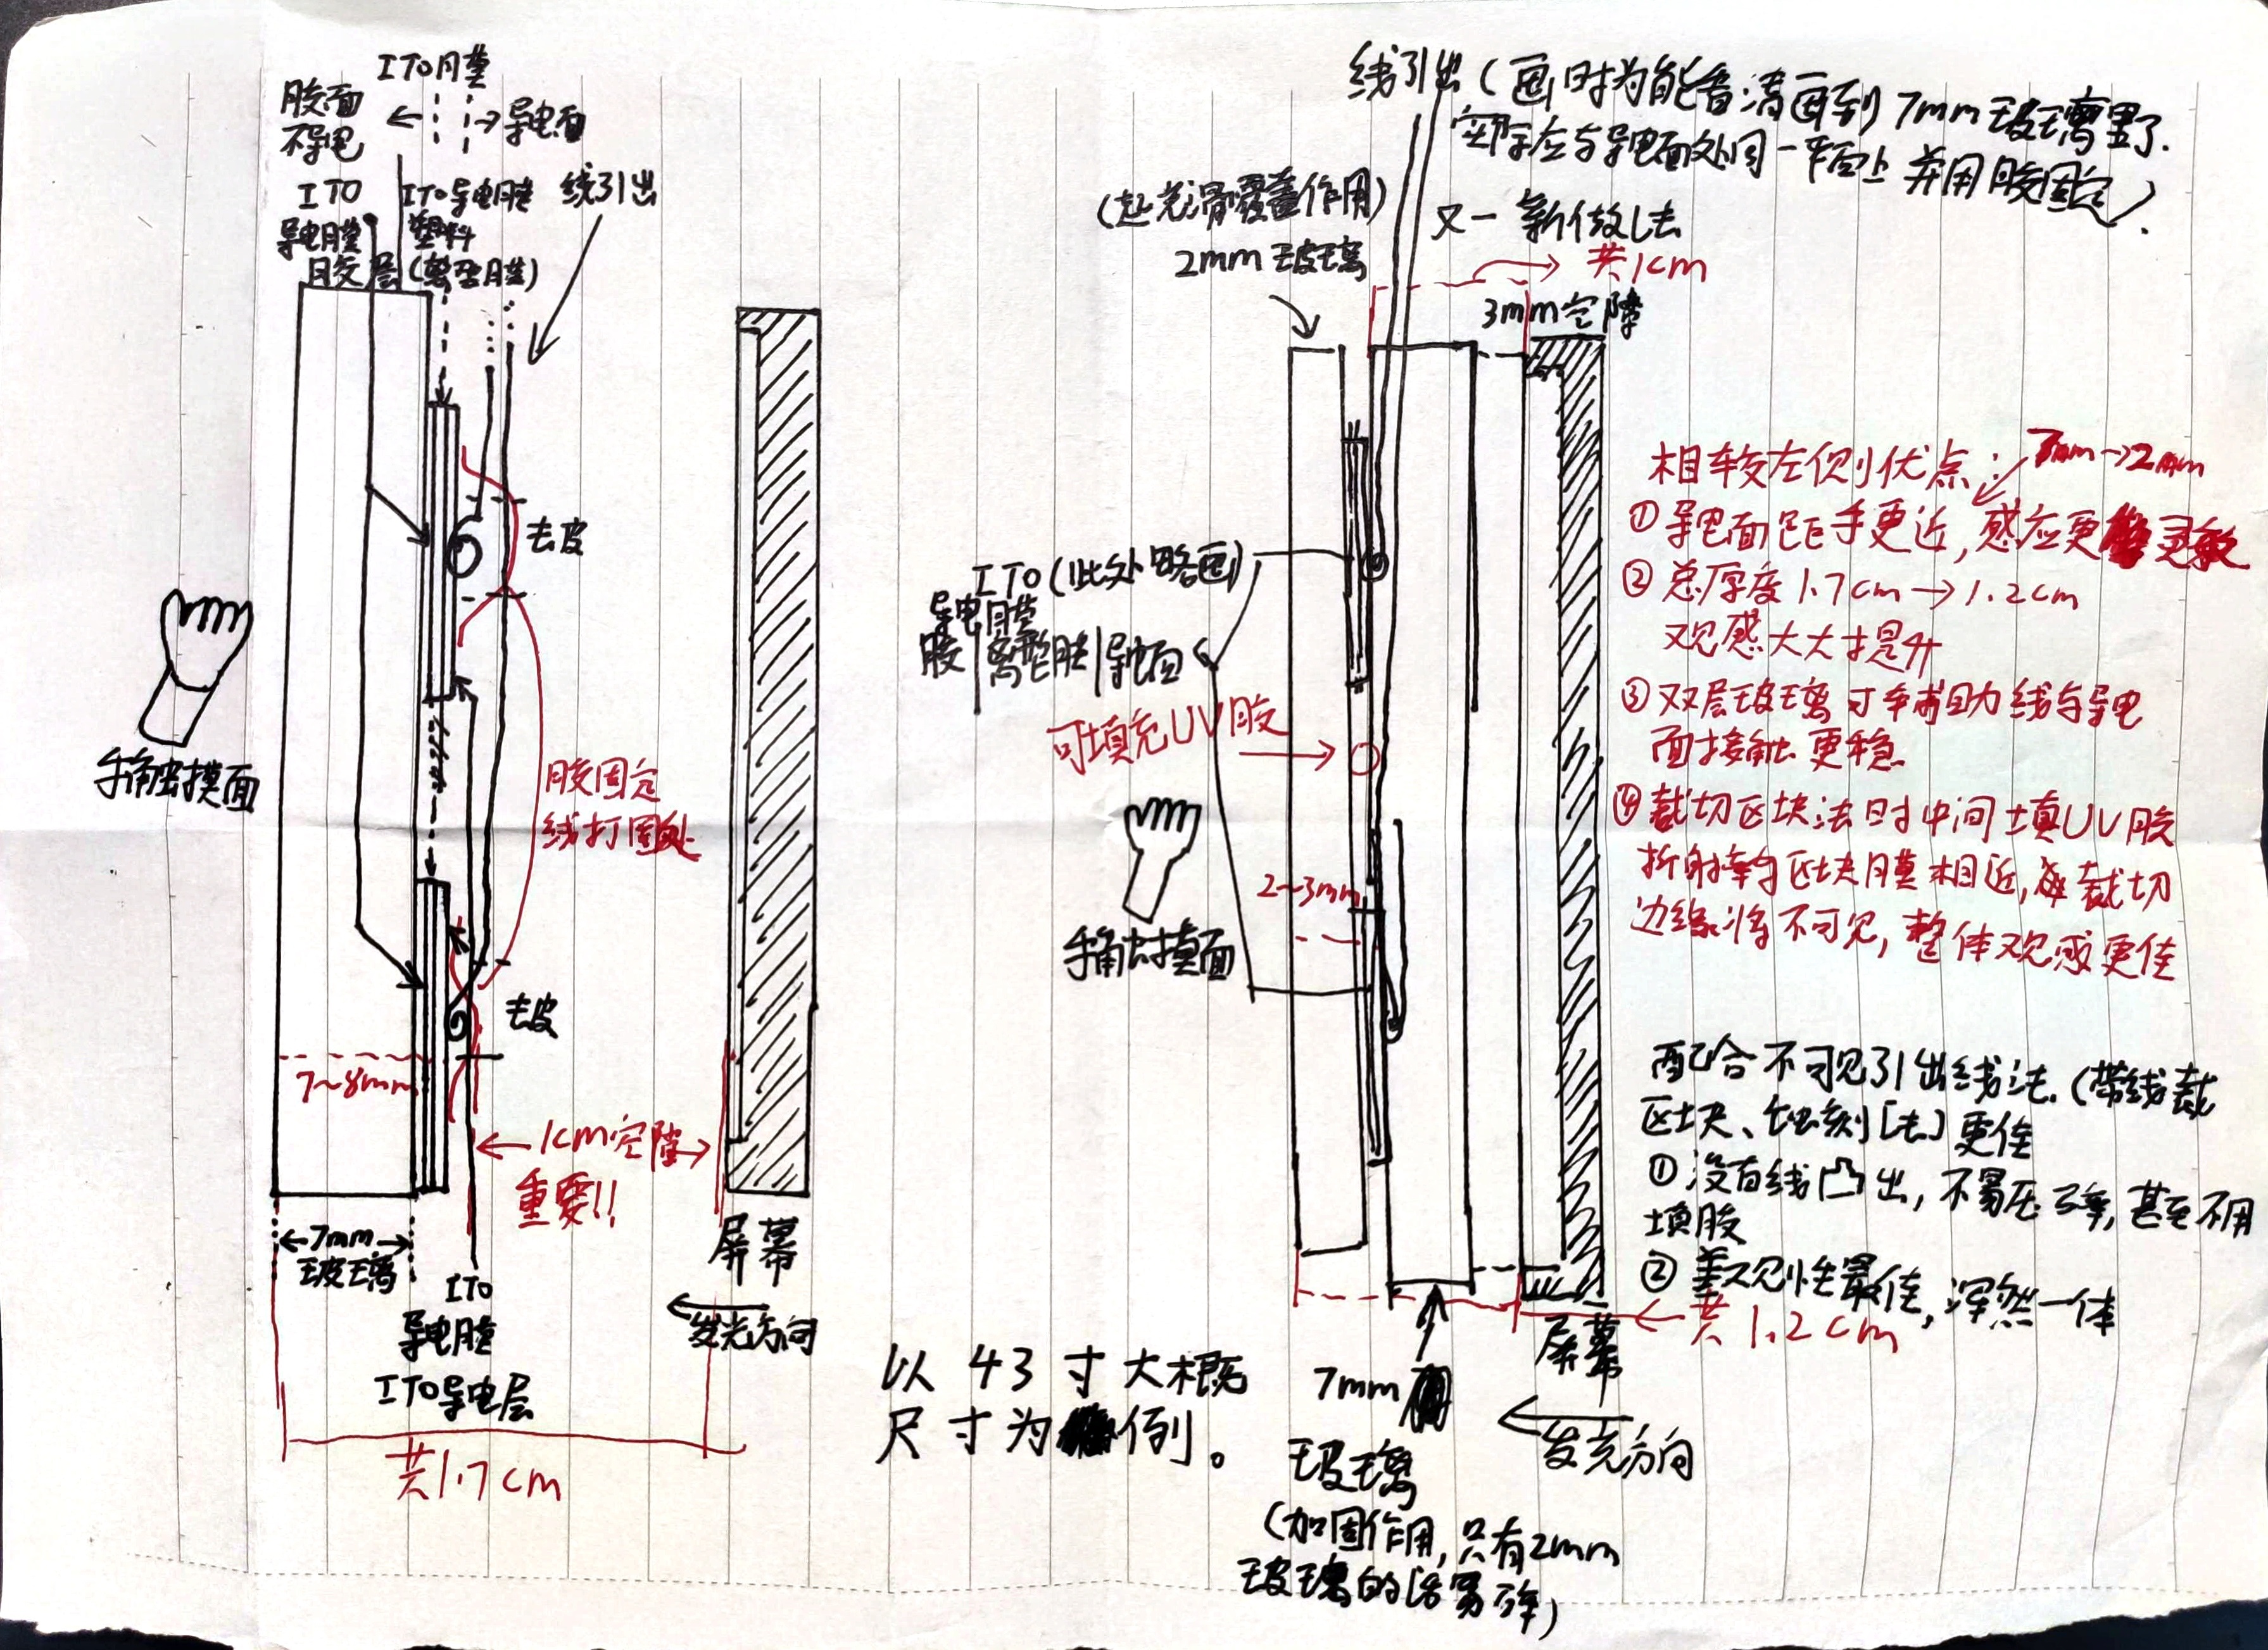 ITO膜
胶面
不导电
导电面
ITO
导电膜
胶层
ITO导电膜
塑料
(离型膜)
线引出
去皮
手触摸面
胶固定
线打圈处
去皮
7~8mm
1cm空隙
重要!!
7mm
玻璃
ITO
导电膜
ITO导电层
共1.7cm
屏幕
发光方向
以43寸大概
尺寸为例。
线引出(画时为能看清画到7mm玻璃里了.
实际应与导电面处同一平面上并用胶固定).
(起光滑覆盖作用)
2mm玻璃
又一新做法
共1cm
3mm空隙
ITO(此处略画)
导电膜
胶|离型膜|导电面
可填充UV胶
2~3mm
手触摸面
7mm
玻璃
(加固作用,只有2mm
玻璃的话易碎)
屏幕
发光方向
共1.2cm
相较左侧优点:
7mm→2mm
①导电面距手更近,感应更灵敏
②总厚度1.7cm→1.2cm
观感大大提升
③双层玻璃对辅助线与导电
面接触更稳
④裁切区块法时中间填UV胶
折射率与区块膜相近,裁切
边缘将不可见,整体观感更佳
配合不可见引出线法.(带线裁
区块、蚀刻法)更佳
①没有线凸出,不易压碎,甚至不用
填胶
②美观性最佳,浑然一体